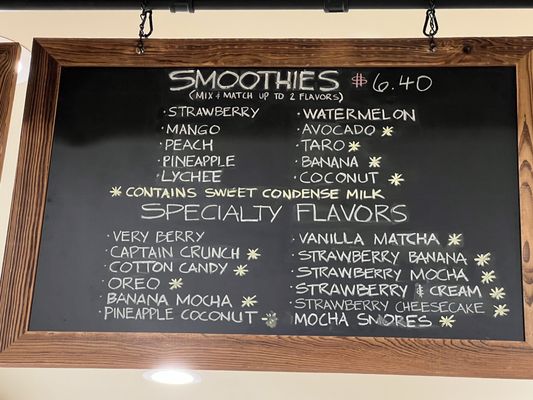 SMOOTHIES $6.40
(MIX & MATCH UP TO 2 FLAVORS)
· STRAWBERRY
· MANGO
· PEACH
· PINEAPPLE
· LYCHEE
· WATERMELON
· AVOCADO *
· TARO *
· BANANA *
· COCONUT *
* CONTAINS SWEET CONDENSE MILK
SPECIALTY FLAVORS
· VERY BERRY
· CAPTAIN CRUNCH *
· COTTON CANDY *
· OREO *
· BANANA MOCHA *
· PINEAPPLE COCONUT - *
· VANILLA MATCHA *
· STRAWBERRY BANANA *
· STRAWBERRY MOCHA *
· STRAWBERRY & CREAM *
· STRAWBERRY CHEESECAKE *
MOCHA SMORES *